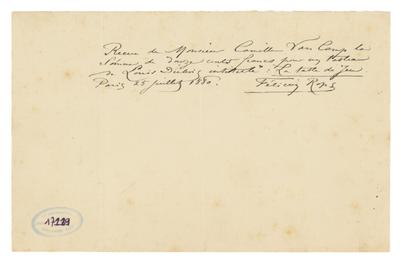 Recue de Monsieur Camille Van Camp la
Somme de douze cents francs pour un tableau
de Louis Dubois intitulé : La table de jeu
Paris 25 juillet 1880.
Félicien Rops
17229